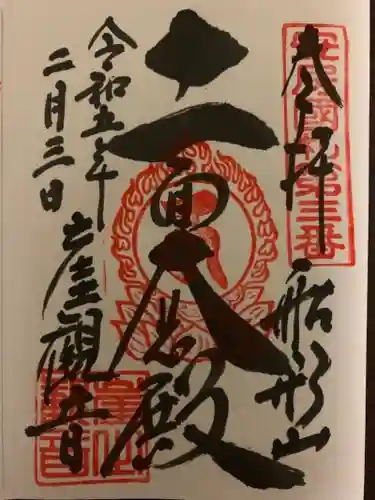 奉拝
安房國札第三番
船形山
十一面大悲殿
令和五年
二月三日
崖観音